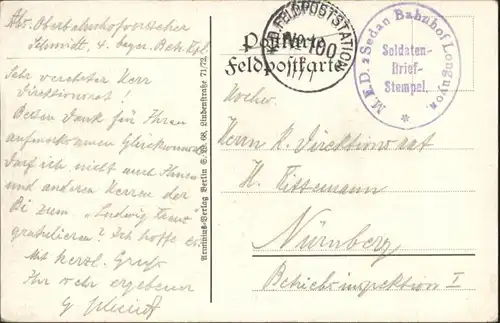 Abs. Oberbahnhofvorsteher
Schmidt, 4. bayer. Betr. Kpl.
Sehr verehrter Herr
Direktionsrat!
Besten Dank für Ihren
aufmerksamen Glückwunsch
Darf ich nicht auch Ihnen
und anderen Herren der
Bi zum "Ludwig Kreuz"
gratulieren? Ich hoffe es
Mit herzl. Gruß
Ihr sehr ergebener
Schmidt
Arminius-Verlag Berlin S.W. 68, Lindenstraße 71/72.
Postkarte
Feldpostkarte
FELDPOSTSTATION
No 100
M.E.D. 2 Sedan Bahnhof Longuyon
Soldaten-
Brief-
Stempel.
*
Herrn K. Direktionsrat
H.
Nürnberg
Betriebsinspektion I